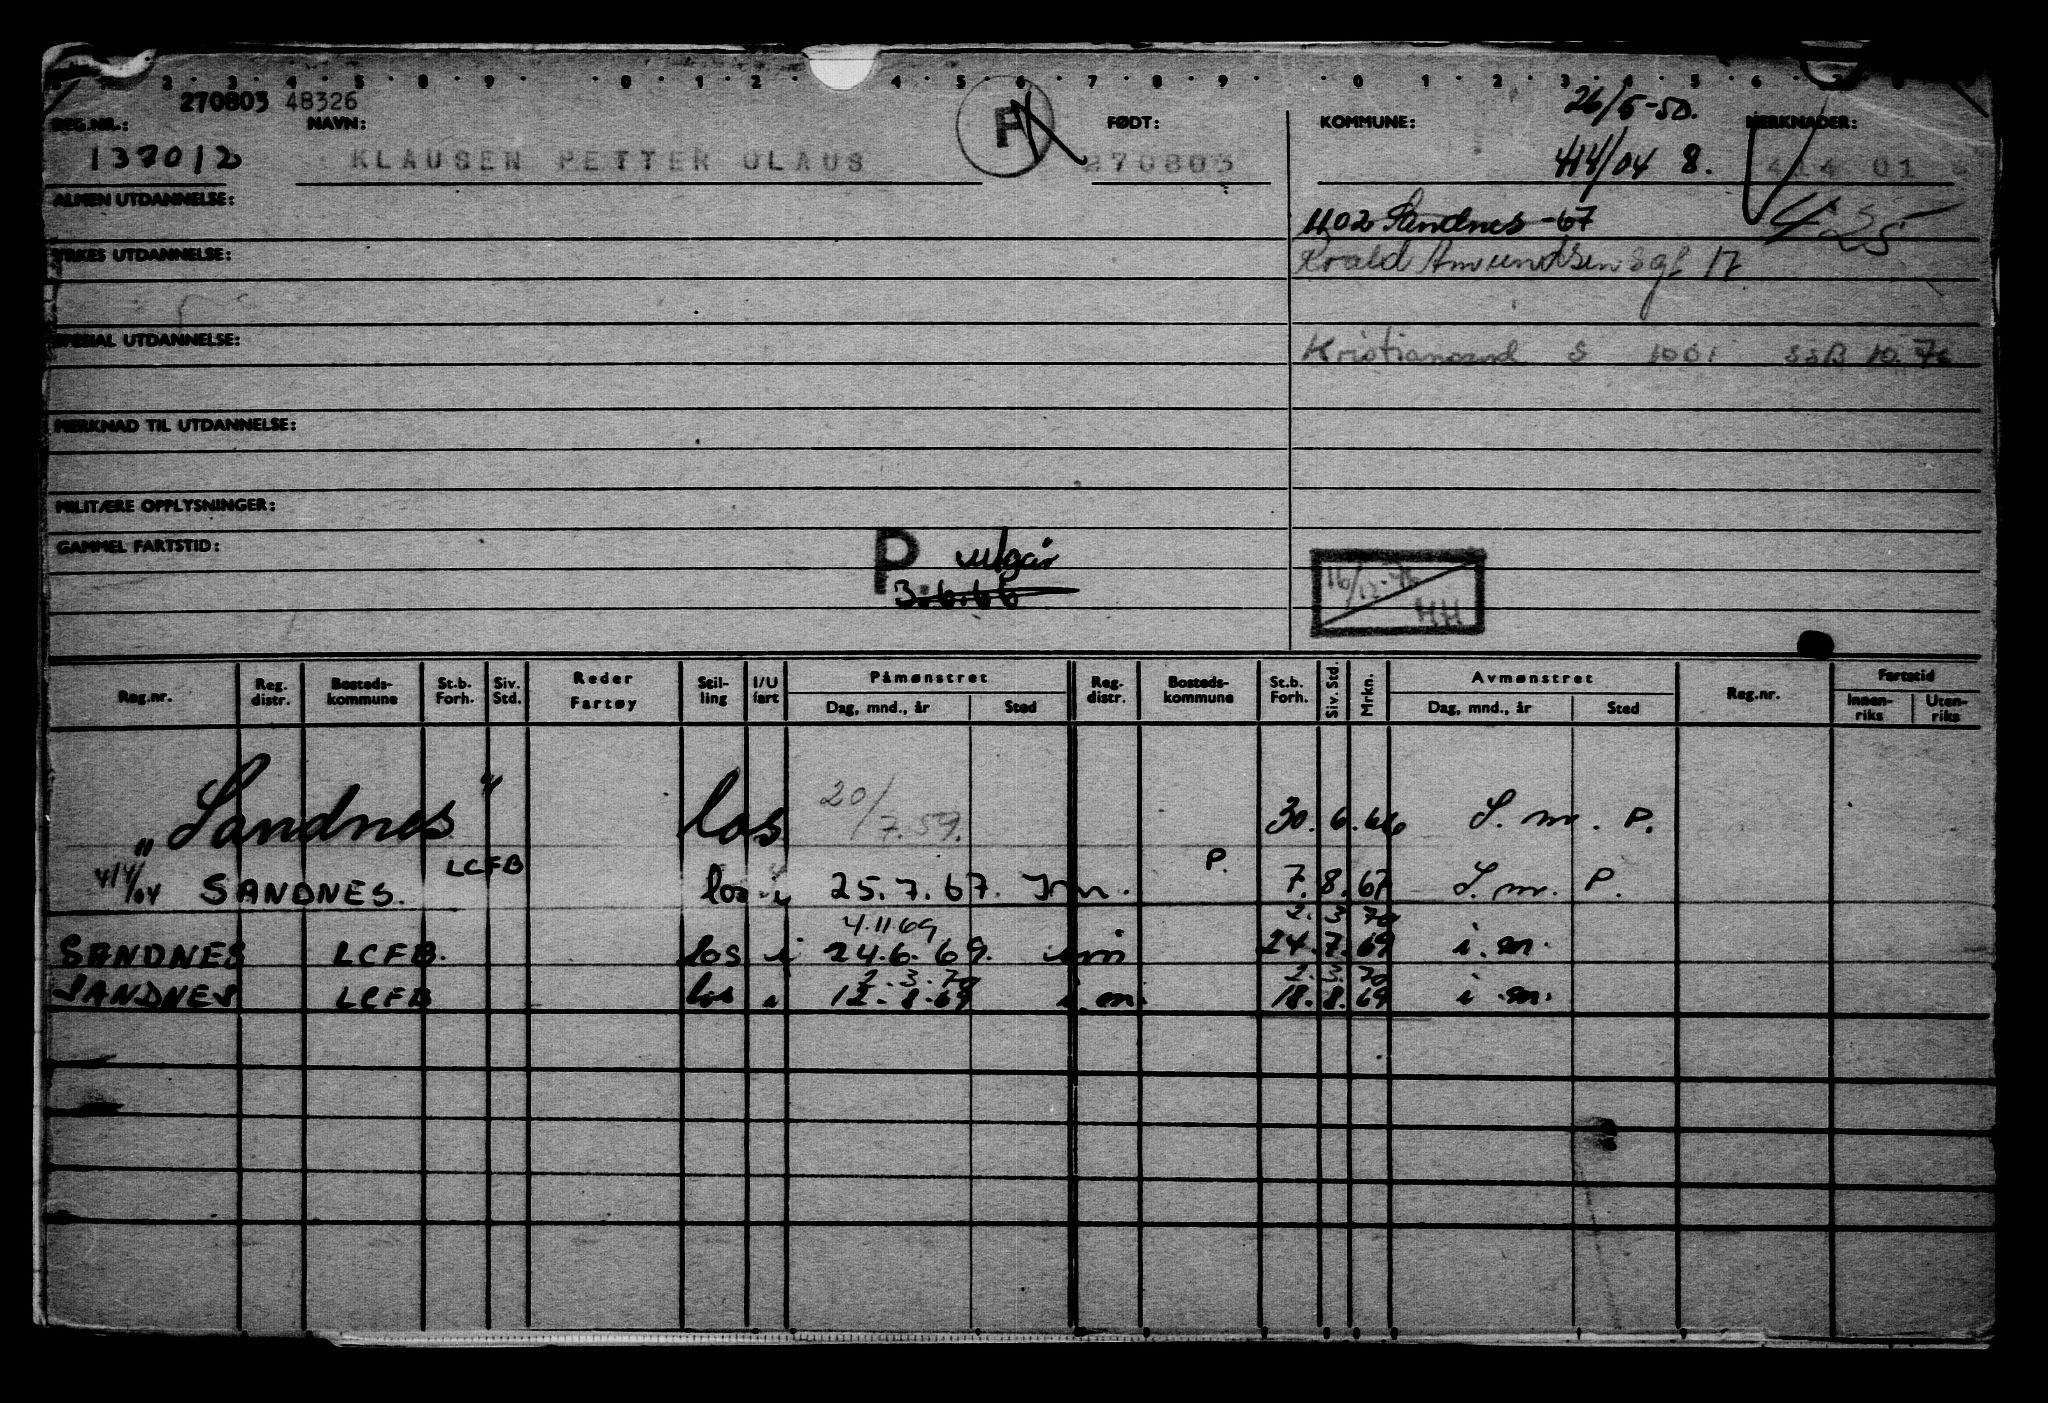 270803 48326
REG.NR.: NAVN: FØDT: KOMMUNE: 26/5-50. MERKNADER:
137012 KLAUSEN PETTER OLAUS P 270803 414/04 8. 414 01
ALMEN UTDANNELSE: 1102 Sandnes -67 425
YRKES UTDANNELSE: Roald Amundsens gt 17
SPESIAL UTDANNELSE: Kristiansand S 1001 SSB 10.76
MERKNAD TIL UTDANNELSE:
MILITÆRE OPPLYSNINGER:
GAMMEL FARTSTID: P utgår
3.6.66
16/12-76
HH
Reg.nr. Reg. distr. Bosteds-kommune St.b. Forh. Siv. Std. Reder Fartøy Stil-ling I/U fart Påmønstret Dag, mnd., år Sted Reg. distr. Bosteds-kommune St.b. Forh. Siv. Std. Mrkn. Avmønstret Dag, mnd., år Sted Reg.nr. Fartstid Innen-riks Uten-riks
"Sandnes" los 20/7.59. 30.6.66 S. m. P.
414/04 SANDNES. LCFB los i 25.7.67. P. 7.8.67 S. m. P.
4.11.69 2.3.70
SANDNES LCFB. los i 24.6.69. 24.7.69 i.m.
2.3.70 2.3.70
SANDNES LCFB los i 12.8.69 i.m. 18.8.69 i.m.